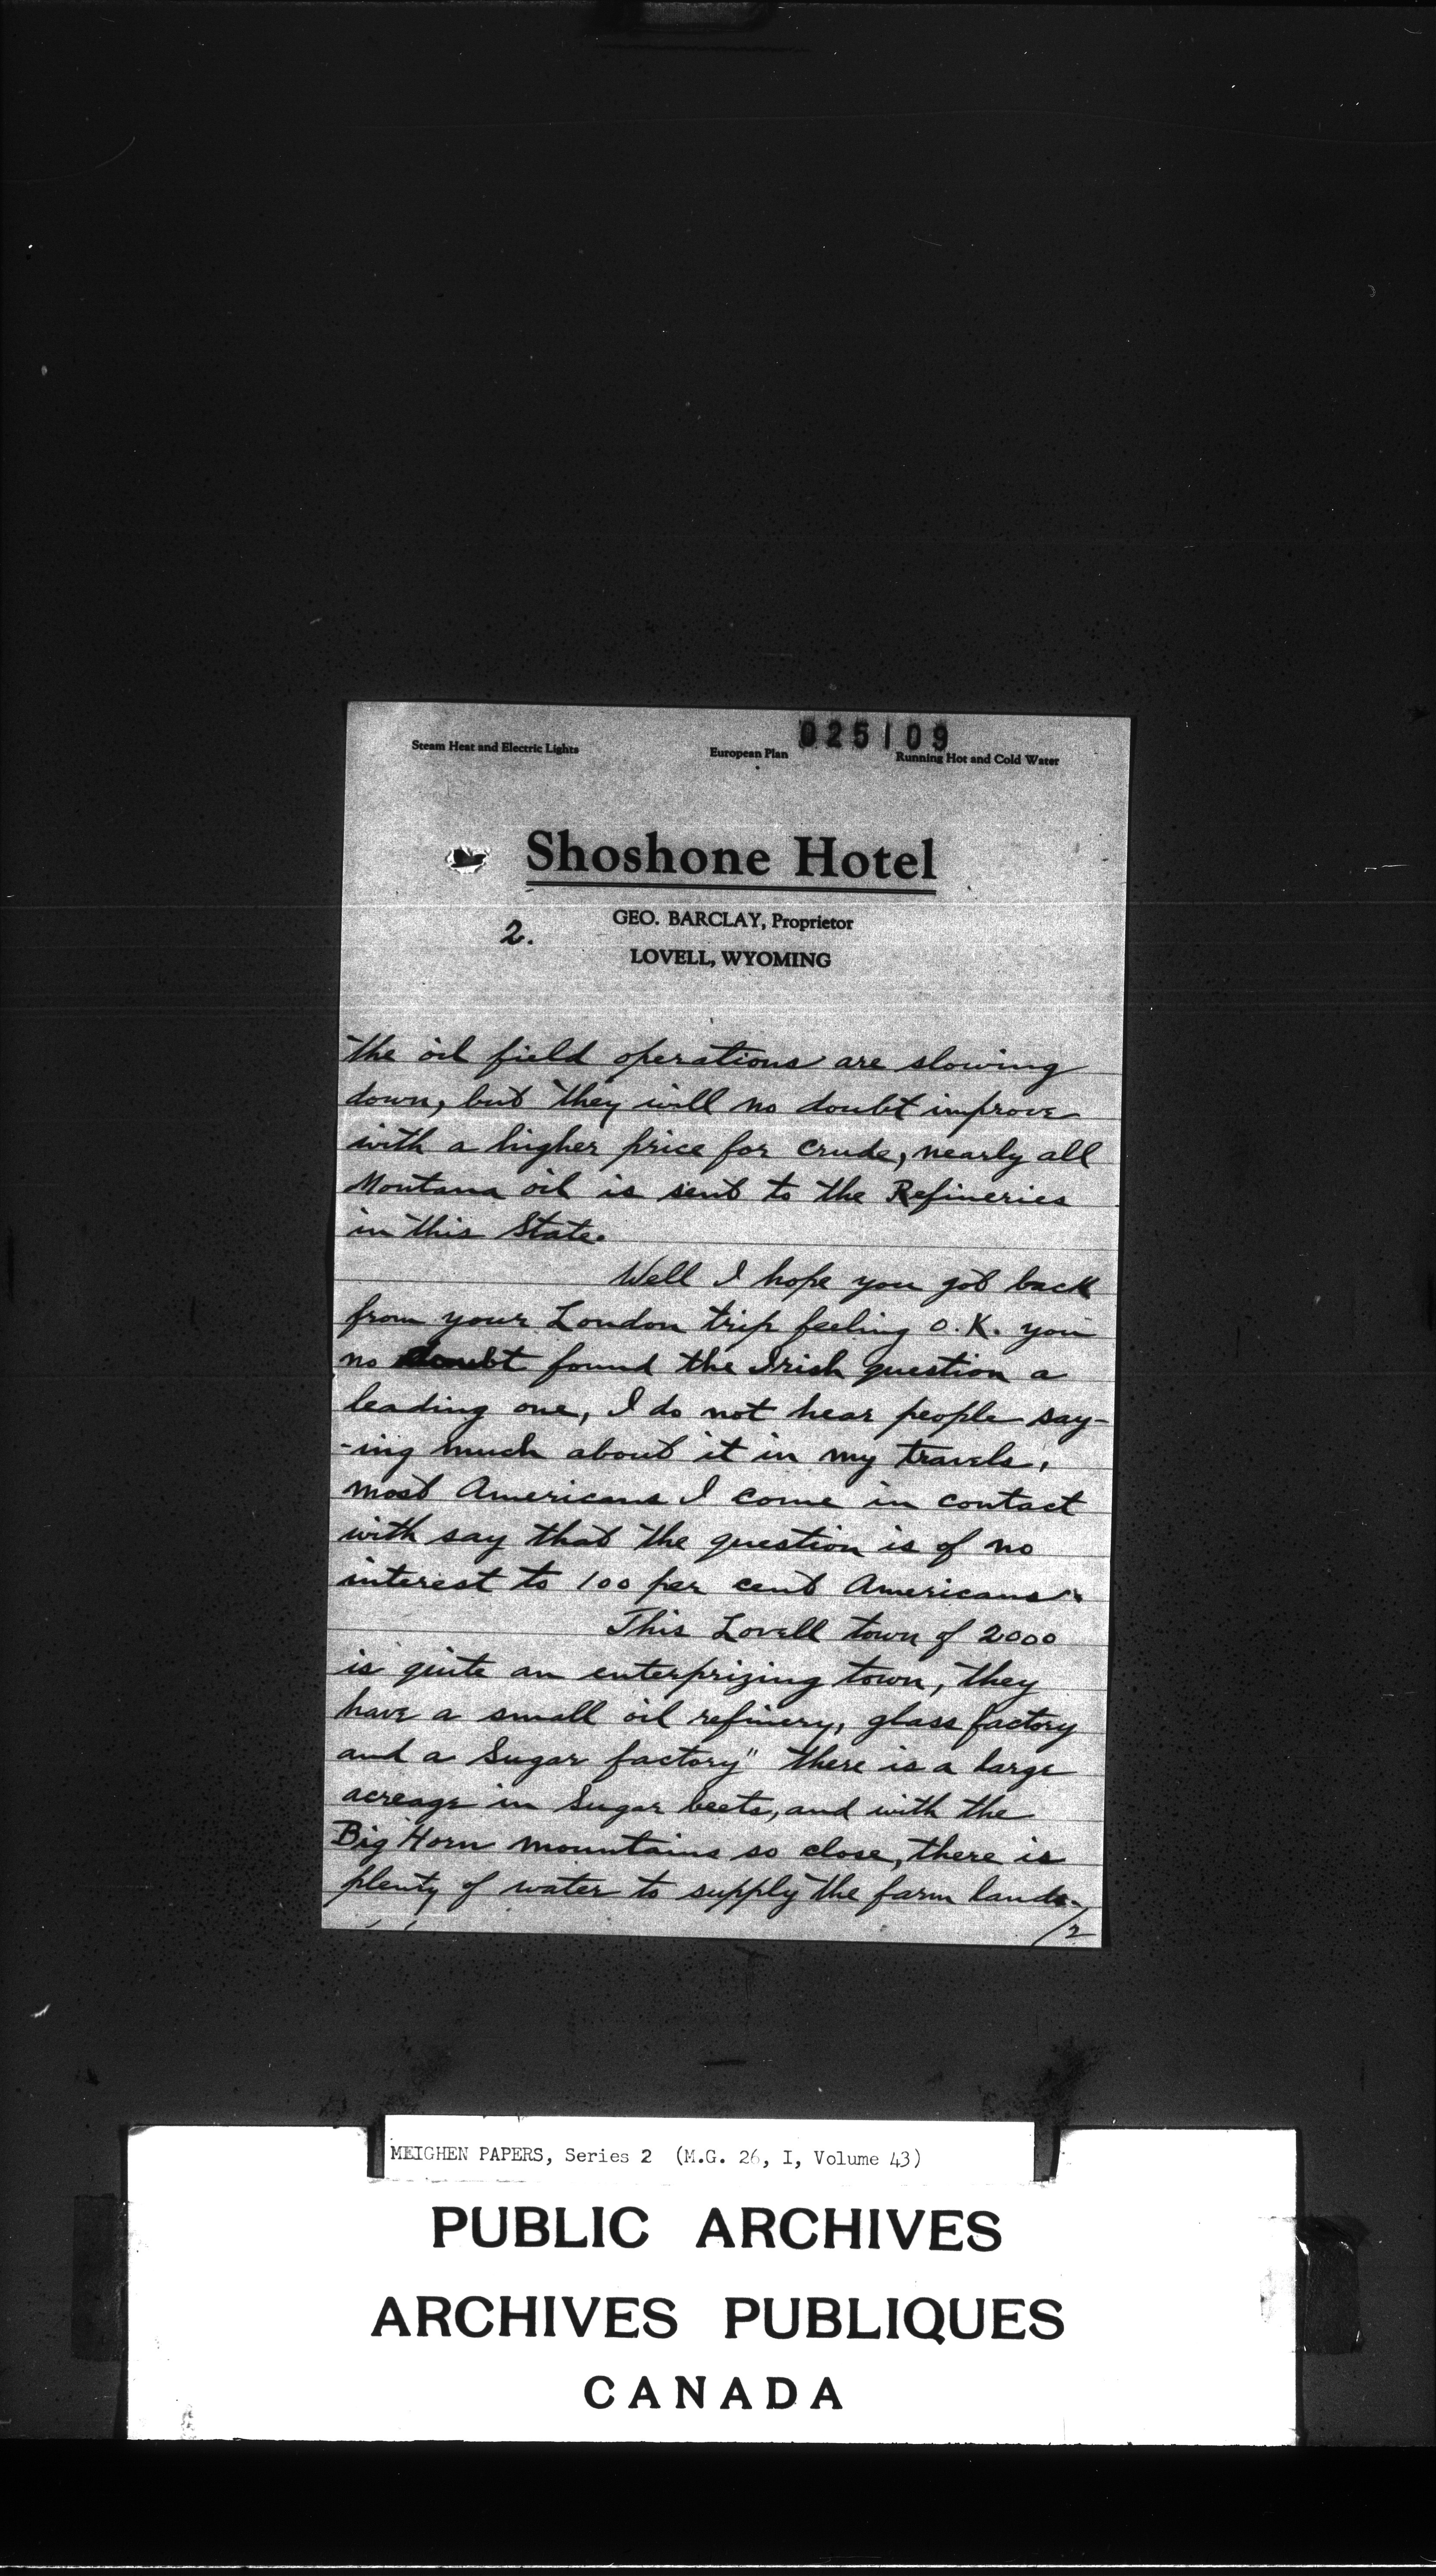 025109
Steam Heat and Electric Lights European Plan Running Hot and Cold Water
Shoshone Hotel
GEO. BARCLAY, Proprietor
2.
LOVELL, WYOMING
the oil field operations are slowing
down, but they will no doubt improve
with a higher price for crude, nearly all
Montana oil is sent to the Refineries
in this State.
Well I hope you got back
from your London trip feeling O.K. you
no doubt found the Irish question a
leading one, I do not hear people say-
-ing much about it in my travels,
most Americans I come in contact
with say that the question is of no
interest to 100 per cent Americans.
This Lovell town of 2000
is quite an enterprizing town, they
have a small oil refinery, glass factory
and a Sugar factory" there is a large
acreage in Sugar beets, and with the
Big Horn mountains so close, there is
plenty of water to supply the farm lands.
/2
MEIGHEN PAPERS, Series 2 (M.G. 26, I, Volume 43)
PUBLIC ARCHIVES
ARCHIVES PUBLIQUES
CANADA